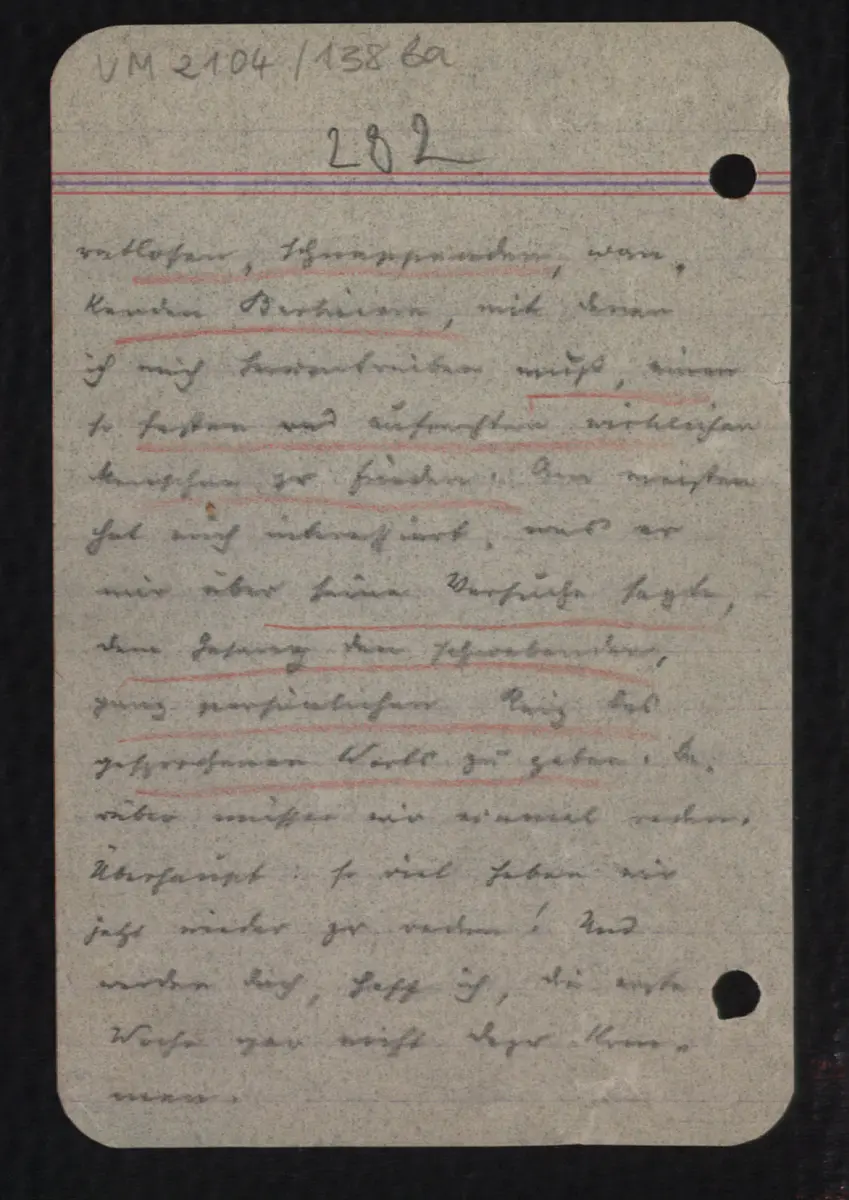 VM 2104/138 Ba
282
ratlosen, schnappenden, wan-
kenden Berlinern, mit denen
ich mich herumtreiben muß, einen
so festen und aufrechten wirklichen
Menschen zu finden. Am meisten
hat mich interessiert, was er
mir über seine Versuche sagte,
dem Gesang den schwebenden,
ganz persönlichen Reiz des
gesprochenen Worts zu geben. Da-
rüber müssen wir einmal reden.
Überhaupt: so viel haben wir
jetzt wieder zu reden! Und
werden doch, hoff ich, die erste
Woche gar nicht dazu kom-
men.